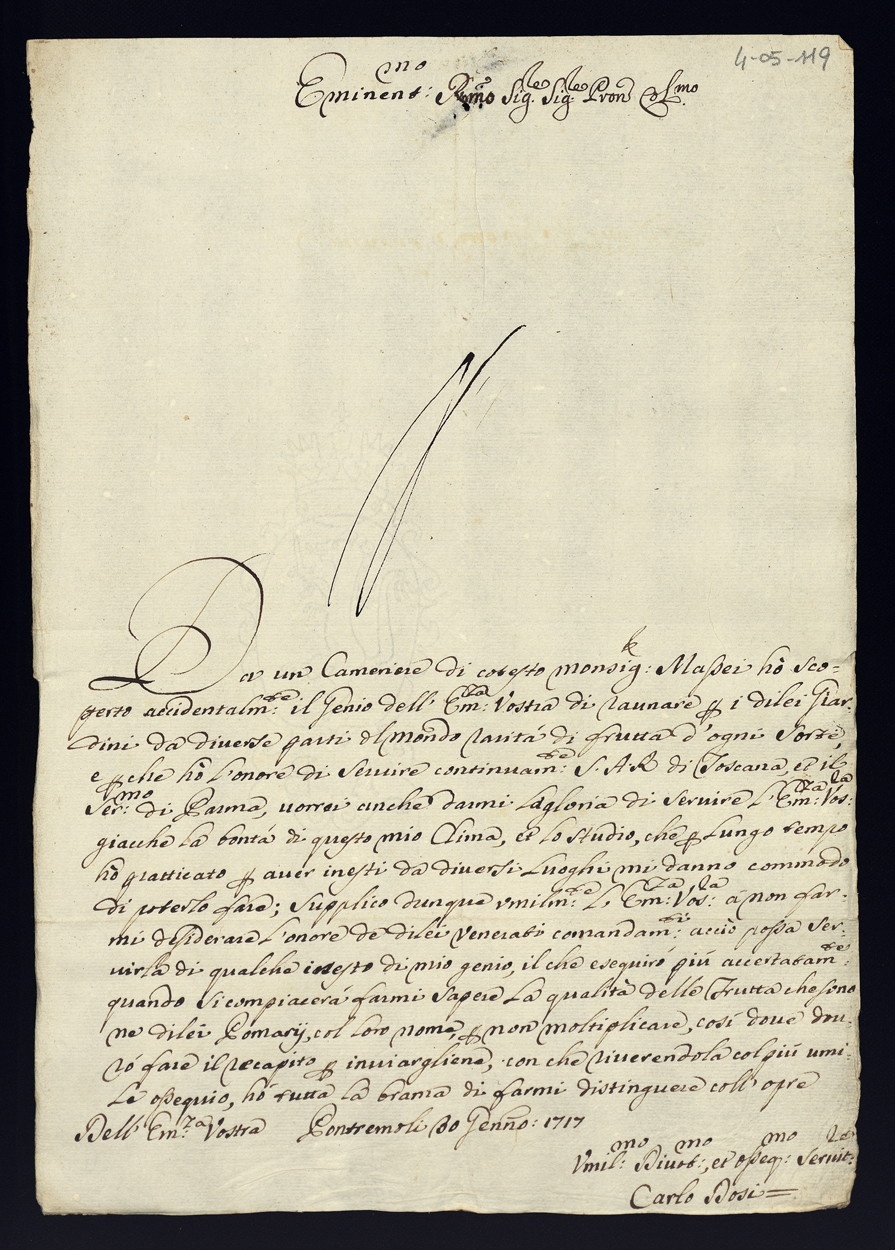 4-05-119
Eminent:mo Rmo Sigre Sigre Pron Colmo
Da un Cameriere di cotesto monsig:r Massei hò sco=
perto accidentalm:te il Genio dell' Em:za Vostra di raunare p i dilei Giar-
dini da diverse parti del mondo raritá di frutta d'ogni sorte,
e p che hò l'onore di servire continuam:te S. A R di Toscana, et il
Ser:mo di Parma, vorrei anche darmi la gloria di servire l'Em:za Vos:ra
giacche la bontá di questo mio Clima, et lo studio, che p lungo tempo
hò pratticato p aver inesti da diversi luoghi mi danno commodo
di poterlo fare; supplico dunque vmilm:te l'Em:za Vos:ra á non far-
mi desiderare l'onore de dilei venerati comandam:ti acciò possa ser-
virla di qualche inesto di mio genio, il che eseguiró piú accertatam:te
quando si compiacerá farmi sapere la qualità delle frutta che sono
ne dilei Pomarij, col loro nome, p non moltiplicare, cosí dove dou-
ró fare il recapito p inviargliene, con che riverendola col piú umi-
le ossequio, hó tutta la brama di farmi distinguere coll'opre
Dell'Em:za Vostra Pontremoli 30 Genno: 1717
Vmil:mo Divot:mo, et osseq:mo Servit:re
Carlo Bosi=